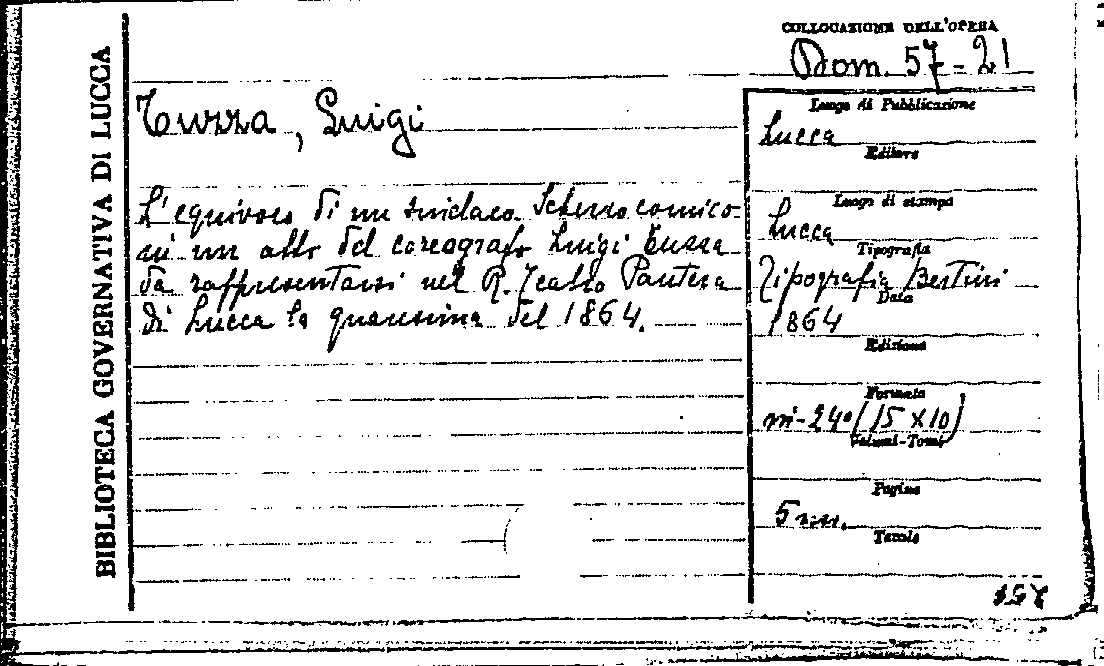 BIBLIOTECA GOVERNATIVA DI LUCCA
COLLOCAZIONE DELL'OPERA
Dom. 57-21
Tuzza, Luigi
L'equivoco di un sindaco. Scherzo comico
in un atto del coreografo Luigi Tuzza
da rappresentarsi nel R. Teatro Pantera
di Lucca la quaresima del 1864.
Luogo di Pubblicazione
Lucca
Editore
Luogo di stampa
Lucca
Tipografia
Tipografia Bertini
Data
1864
Edizione
Formato
in-24º (15 x 10)
Volumi-Tomi
Pagine
5 nn.
Tavole